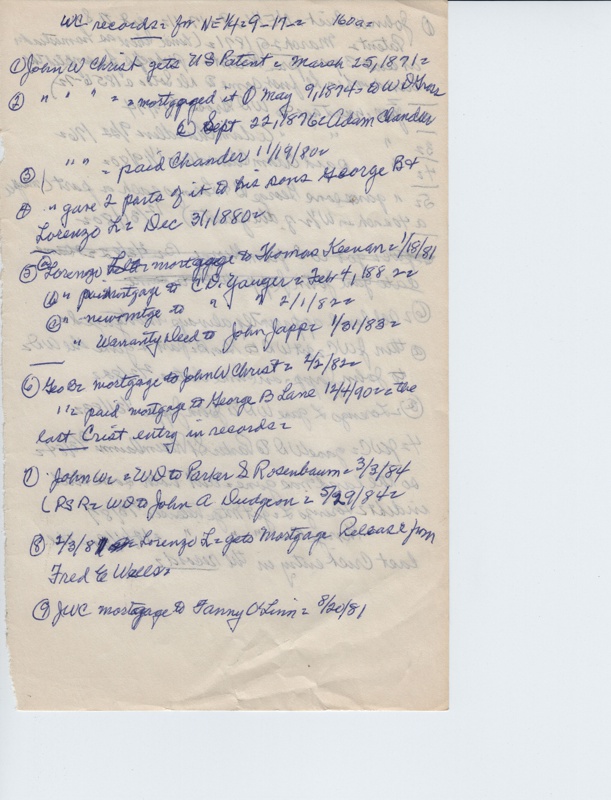 WC records = for NE 1/4 = 9-17 = 160a =
① John W Christ gets US Patent = March 25, 1871 =
② " " " = = mortgaged it ① May 9, 1874 = to W D
② Sept 22, 1876 = Adam Chandler
③ " " = paid Chander 11/19/80 =
④ " gave 2 parts of it to his sons George B +
Lorenzo L = Dec 31, 1880 =
⑤ Lorenzo mortgage to Thomas Keenan = 1/18/81
① " mortgage to C D. Yauger = Feb 4, 1882 =
② " to " " 2/1/82 =
" Warranty Deed to John Japp = 1/31/83 =
⑥ Geo B = mortgage to John W Christ = 2/2/82 =
" = paid mortgage to George B Lane 12/4/90 = = the
last Crist entry in records =
⑦ John W = = WD to Parker S Rosenbaum = 3/3/84
( PSR = WD to John A Dudgeon = 5/29/84 =
⑧ 2/3/81 = Lorenzo L = gets Mortgage Release from
Fred E Wells =
⑨ JWC mortgage to Fanny O'Linn = 8/20/81